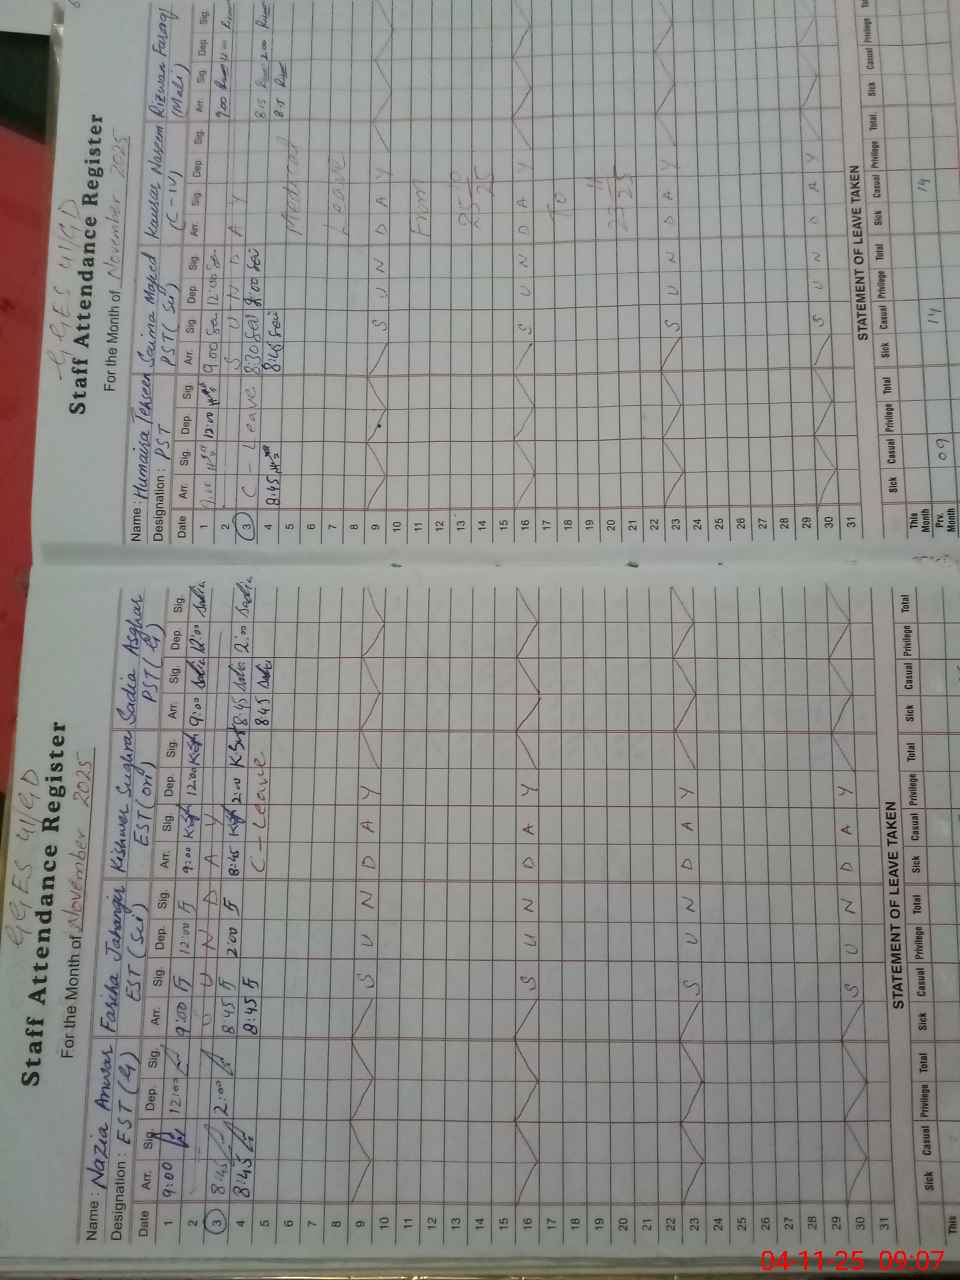 GGES 41/GD
Staff Attendance Register
For the Month of November 2025
Name : Nazia Anwar Fariha Jahangir Kishwer Sughra Sadia Asghar
Designation : EST (G) EST (Sci) EST (ori) PST (G)
Date Arr. Sig. Dep. Sig. Arr. Sig. Dep. Sig. Arr. Sig. Dep. Sig. Arr. Sig. Dep. Sig.
1 9:00 12:00 9:00 12:00 9:00 12:00 9:00 12:00
2 S U N D A Y
3 8:45 2:00 8:45 2:00 8:45 2:00 8:45 2:00
4 8:45 8:45 C - Leave 8:45
5
6
7
8
9 S U N D A Y
10
11
12
13
14
15
16 S U N D A Y
17
18
19
20
21
22
23 S U N D A Y
24
25
26
27
28
29
30 S U N D A Y
31
STATEMENT OF LEAVE TAKEN
Sick Casual Privilege Total Sick Casual Privilege Total Sick Casual Privilege Total Sick Casual Privilege Total
This
GGES 41/GD
Staff Attendance Register
For the Month of November 2025
Name : Humaira Tehseen Saima Majeed Kausar Naseem Rizwan Farooq
Designation : PST PST (Sci) (C-IV) (Mali)
Date Arr. Sig. Dep. Sig. Arr. Sig. Dep. Sig. Arr. Sig. Dep. Sig. Arr. Sig. Dep. Sig.
1 12:00 9:00 12:00 9:00
2 S U N D A Y
3 C - Leave 8:30 2:00 8:15 2:00
4 8:45 8:45 8:15
5 Medical
6
7 Leave
8
9 S U N D A Y
10
11 From
12
13
14 25
15
16 S U N D A Y
17 To
18
19
20
21 25
22
23 S U N D A Y
24
25
26
27
28
29
30 S U N D A Y
31
STATEMENT OF LEAVE TAKEN
Sick Casual Privilege Total Sick Casual Privilege Total Sick Casual Privilege Total Sick Casual Privilege
This Month 14
Prv. Month 09 14
04-11-25 09:07